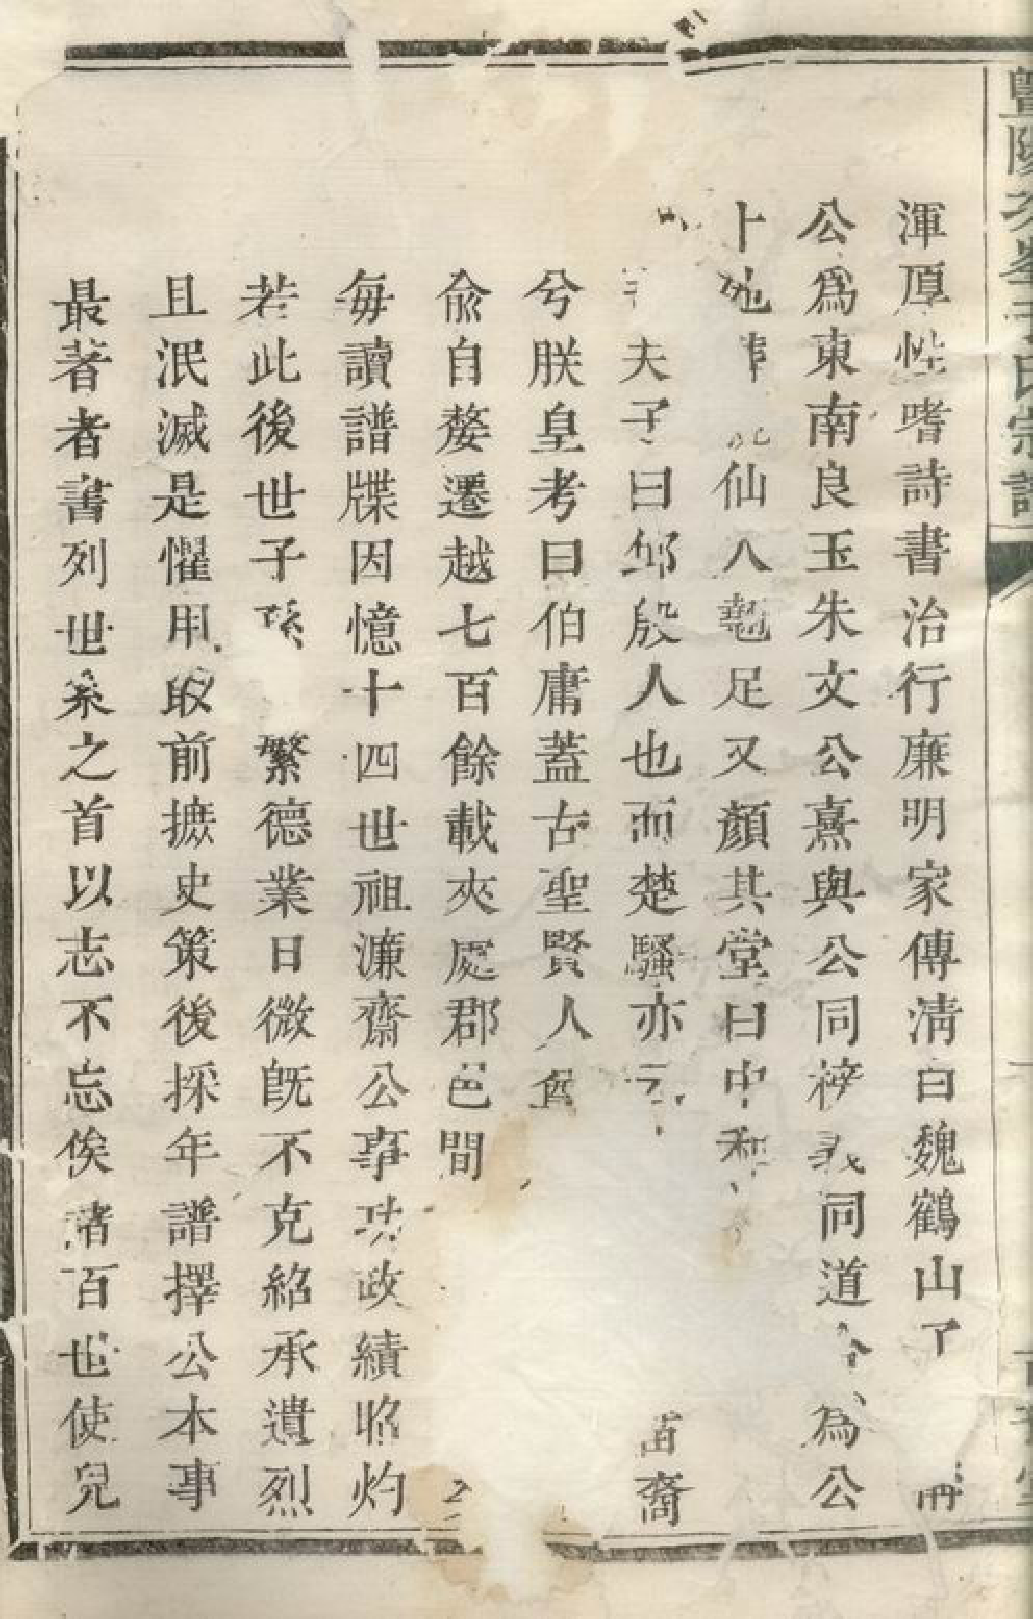 暨陽 氏宗譜
渾厚性嗜詩書治行廉明家傳清白魏鶴山了
公爲東南良玉朱文公熹與公同榜義同道合爲公
卜地 仙人蹺足又顏其堂曰中和
夫子曰邱殷人也而楚騷亦云 苗裔
兮朕皇考曰伯庸蓋古聖賢人
俞自婺遷越七百餘載夾處郡邑間
每讀譜牒因憶十四世祖濂齋公事功政績昭灼
若此後世子孫 繁德業日微旣不克紹承遺烈
且泯滅是懼用敢前摭史策後採年譜擇公本事
最著者書列世系之首以志不忘俟諸百世使兒